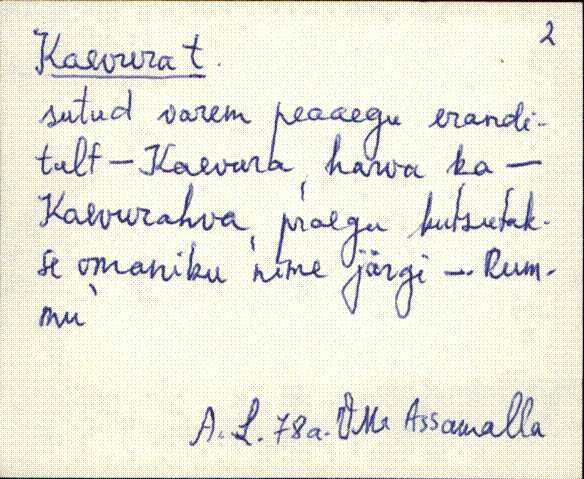 2
Kaevura t.
sutud varem peaaegu erandi-
tult – Kaevura, harva ka –
Kaevurahva, praegu kutsutak-
se omaniku nime järgi – Rum-
mu
A. L. 78a. VMr Assamalla